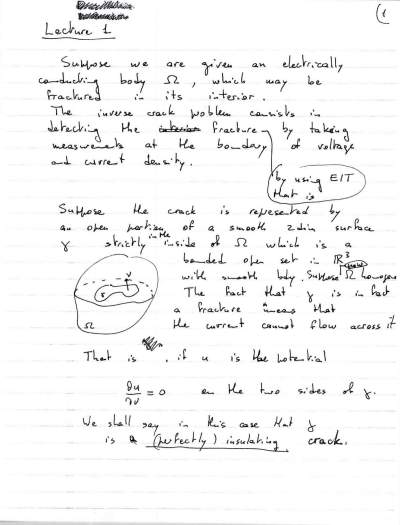 (1
Lecture 1
Suppose we are given an electrically
conducting body Ω, which may be
fractured in its interior.
The inverse crack problem consists in
detecting the fracture by taking
measurements at the boundary of voltage
and current density.
by using EIT
that is
Suppose the crack is represented by
an open portion of a smooth 2dim surface
γ strictly in the inside of Ω which is a
bounded open set in ℝ³
with smooth bdry. Suppose Ω homogeneous
The fact that γ is in fact
a fracture means that
the current cannot flow across it
ν
γ
Ω
That is, if u is the potential
∂u/∂ν = 0 on the two sides of γ.
We shall say in this case that γ
is a (perfectly) insulating crack.